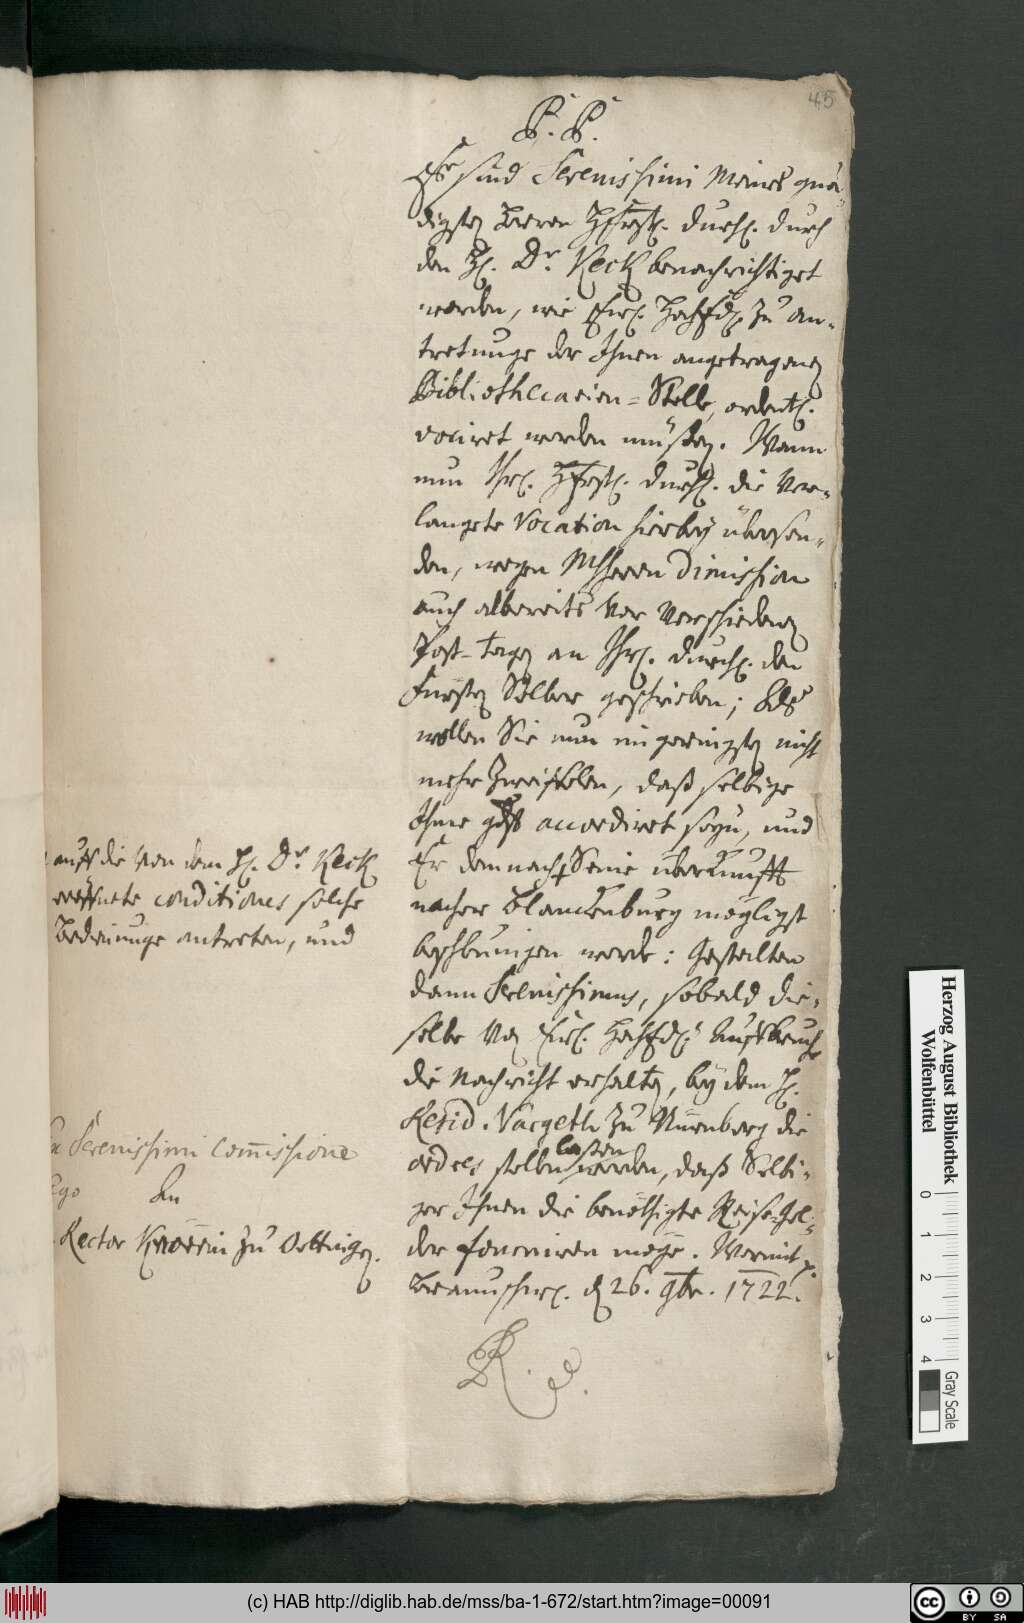 45
P. P.
Es sind Serenissimi Meines gnä-
digsten Herren Hfrstl. Durchl. durch
den H. Dr. Keck benachrichtiget
worden, wie Ewl. HochEd. zu An-
tretunge der Ihnen angetragenen
Bibliothecarien-Stelle, ordentl.
vociret werden müsten. Wann
nun Ihr. Hfrstl. Durchl. die Ver-
langete Vocation hierbey übersen-
den, wegen MhHerren Dimission
auch albereits vor verschiedenen
Post-tagen an Ihr. Durchl. den
Fürsten Selber geschrieben; Als
wollen Sie nun im geringsten nicht
mehr Zweiffelen, daß selbige
Ihme accordiret seyn, und
Er demnach Seine überkunfft
nacher Blanckenburg mögligst
beschleunigen werde: Gestalten
dann Serenissimus, sobald die-
selbe von Ewl. HochEd. Auffbruch
die Nachricht erhalten, bey dem H.
Resid. Vargeth zu Nürnberg die
ordres stellen laßen werden, daß Selbi-
ger Ihnen die benöthigte Reise-Gel-
der fourniren möge. Womit p.
Braunschwl. d 26. 9br. 1722.
auff die von dem H. Dr. Keck
eröffnete conditiones solche
Bedienunge antreten, und
Serenissimi Commissione
Ego
An
Rector zu Oettingen.
Herzog August Bibliothek
Wolfenbüttel
0 1 2 3 4
Gray Scale
(c) HAB http://diglib.hab.de/mss/ba-1-672/start.htm?image=00091
cc BY SA